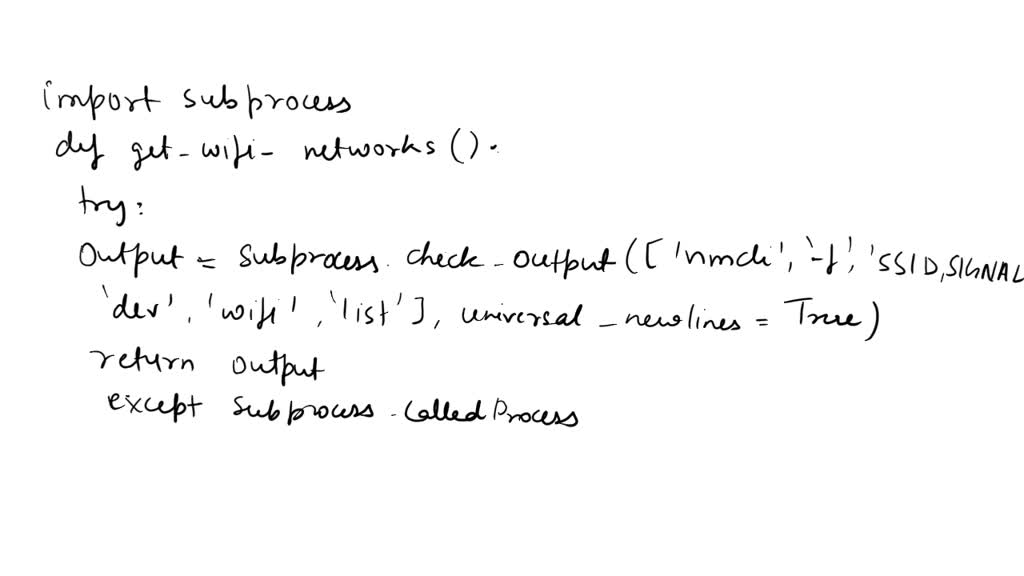 import subprocess
def get-wifi-networks().
try:
Output = subprocess.check-output(['nmcli', '-f', 'SSID,SIGNAL
'dev', 'wifi', 'list'], universal_newlines = True)
return output
except subprocess.calledProcess